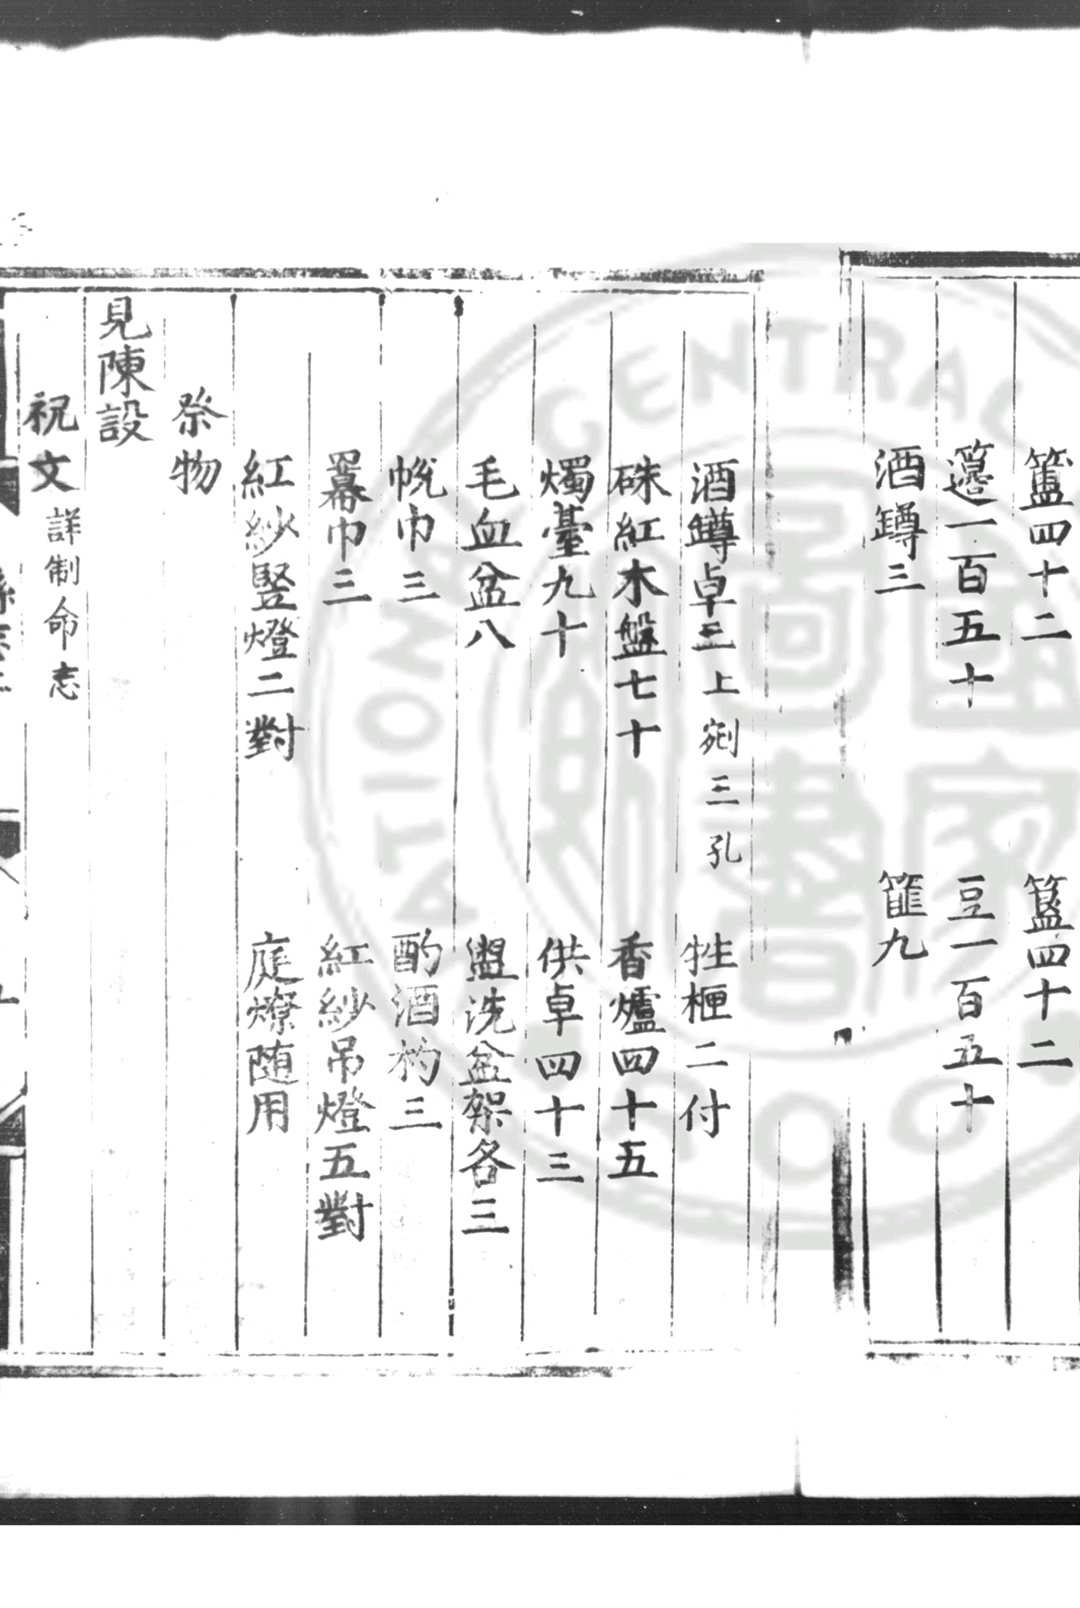 簠四十二　簋四十二
籩一百五十　豆一百五十
酒罇三　篚九
酒罇卓三上剜三孔　牲柙二付
硃紅木盤七十　香爐四十五
燭臺九十　供卓四十三
毛血盆八　盥洗盆架各三
帨巾三　酌酒杓三
羃巾三　紅紗吊燈五對
紅紗竪燈二對　庭燎随用
祭物
見陳設
祝文詳制命志